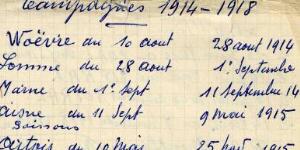 Campagnes 1914-1918
Woëvre du 10 aout 28 aout 1914
Somme du 28 aout 1er Septembre
Marne du 1er Sept 11 Septembre 14
Aisne du 11 Sept 9 mai 1915
Soissons
Artois du 10 Mai 25 1915